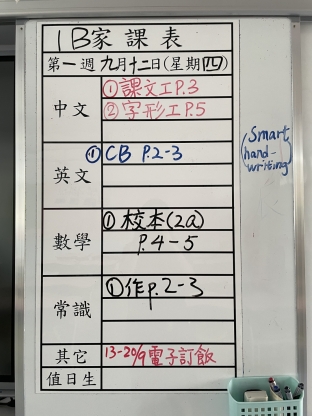 1B家課表
第一週九月十二日(星期四)
中文
①課文工P.3
②字形工P.5
英文
①CB P.2-3
(Smart
hand-
writing)
數學
①校本(2a)
P.4-5
常識
①作p.2-3
其它
13-20/9電子訂飯
值日生